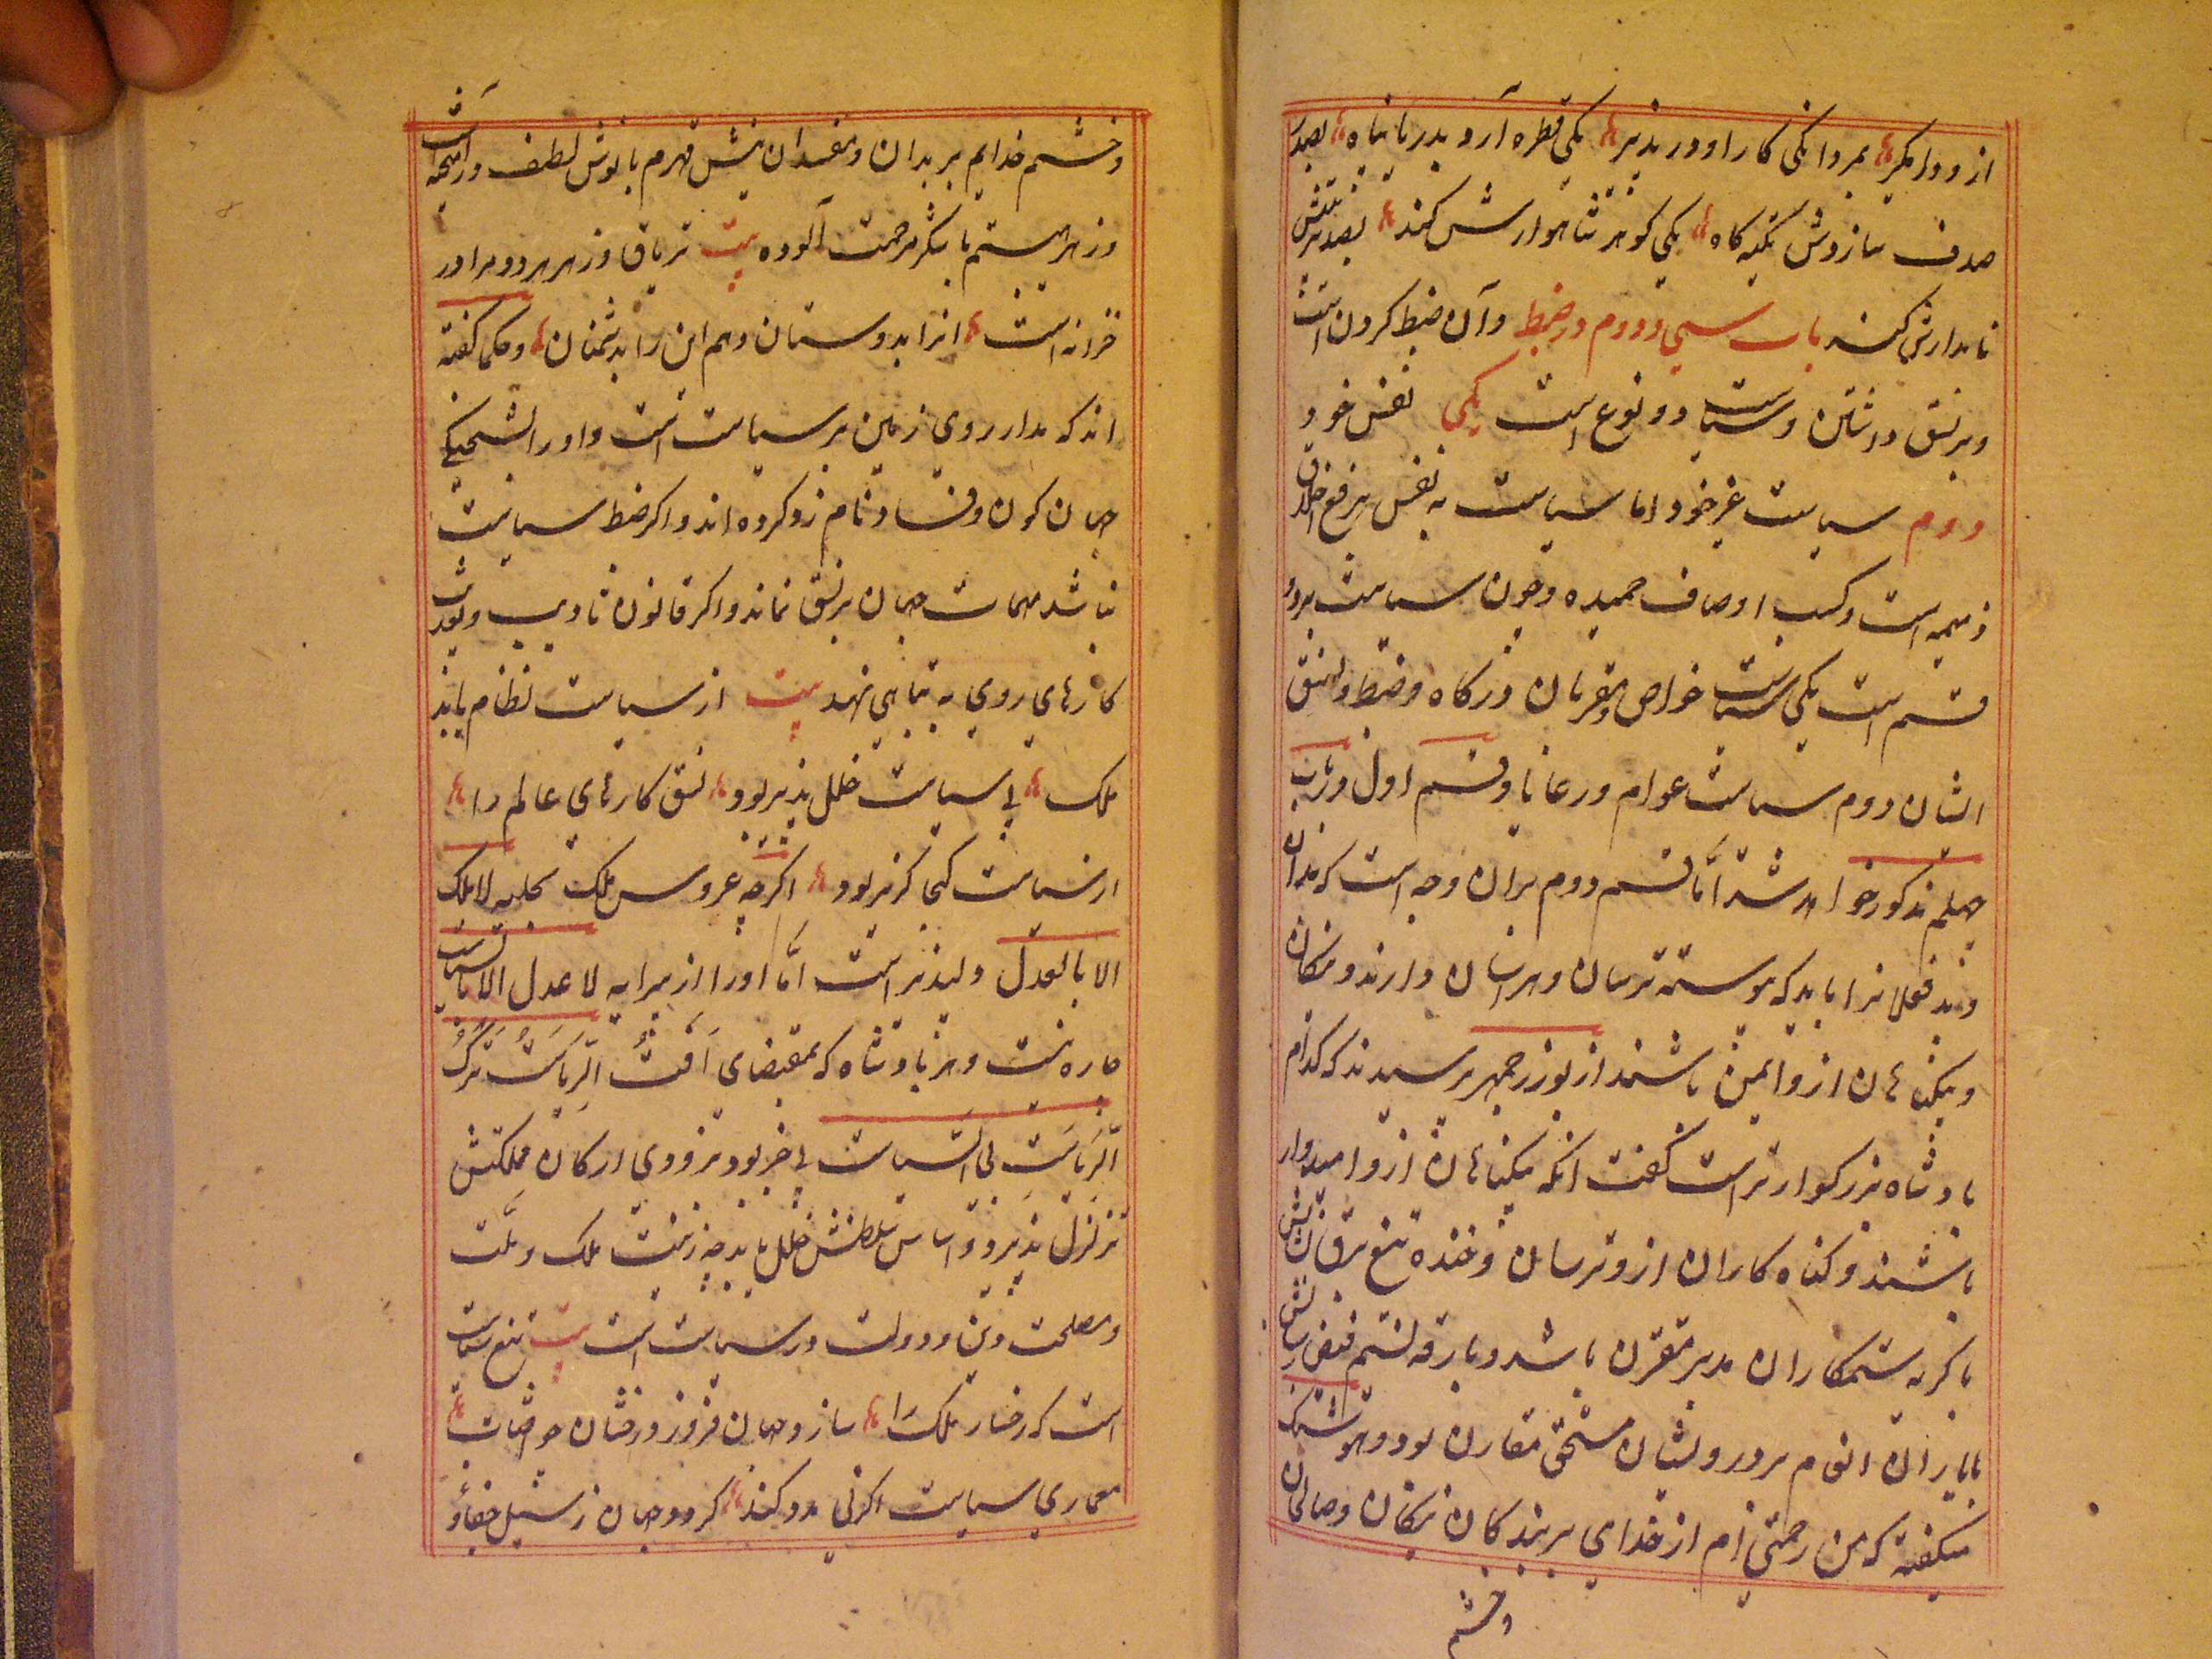 از دور میگیر بمردانگی کار او در پذیر یکی قطره آرد بدریا پناه بصدر
صدف سازدش تکیه گاه یکی گوهر شاهوارش کند بصد
نامدارش کند باب سی و دوم در ضبط وآن ضبط کردن است
و بر نسق داشتن و سیاست دو نوع است یکی نفس خود
دوم سیاست غیر خود اما سیاست به نفس برفع اخلاق
ذمیمه است و کسب اوصاف حمیده و چون سیاست بر دو
قسم است یکی سیاست خواص و مقربان درگاه و ضبط و نسق
ایشان دوم سیاست عوام و رعایا و قسم اول در باب
چهلم مذکور خواهد شد امّا قسم دوم بران وجه است که بدان
و بد فعلانرا باید که پیوسته ترسان و هراسان دارند و نیکان
و بیگناهان ازو ایمن باشند از بوزرجمهر پرسیدند که کدام
پادشاه بزرگوارتر است گفت آنکه بیگناهان ازو امیدوار
باشند و گناه کاران ازو ترسان و خنده تیغ
با گریه ستمکاران مدبر مقترن باشد و بارقه تبسم فیض
با باران انعام بر درویشان مستحق مقارن بود و هوشنگ
میگفته که من رحمتی ام از خدای بر بندگان نیکان و صالحان
وخشم
وخشم خدایم بر بدان و مفسدان نیش قهرم با نوش لطف درآمیخته است
و زهر ستم با شکر مرحمت آلوده بیت تریاق و زهر هر دو مرا در
خزانه است انرا بدوستان دهم این را بدشمنان و حکما گفته
اند که مدار روی زمین بر سیاست است و او را
جهان کون و فساد نام زد کرده اند و اگر ضبط سیاست
نباشد مهمات جهان بر نسق نماند و اگر قانون تادیب و تعذیب
کارهای روی به تباهی نهد بیت از سیاست نظام یابد
ملک بی سیاست خلل پذیر بود نسق کارهای عالم را
از سیاست کجا گزیر بود اگرچه عروس ملک بحلیه لا ملک
الا بالعدل دلپذیر است امّا او را از پیرایه لا عدل الا بالسیاست
چاره نیست و هر پادشاه که بمقتضای آفت الریاست ترک
الریاست بی السیاست بی خبر بود بزودی ارکان مملکتش
تزلزل پذیرد و اساس سلطنتش خلل یابد چه زینت ملک و ملّت
و مصلحت دین و دولت در سیاست است بیت تیغ سیاست
است که رخسار ملک را سازد جهان فروز و رخشان چو آفتاب
معماری سیاست اگر نی مدد کند گردد جهان ز سیل جفا و